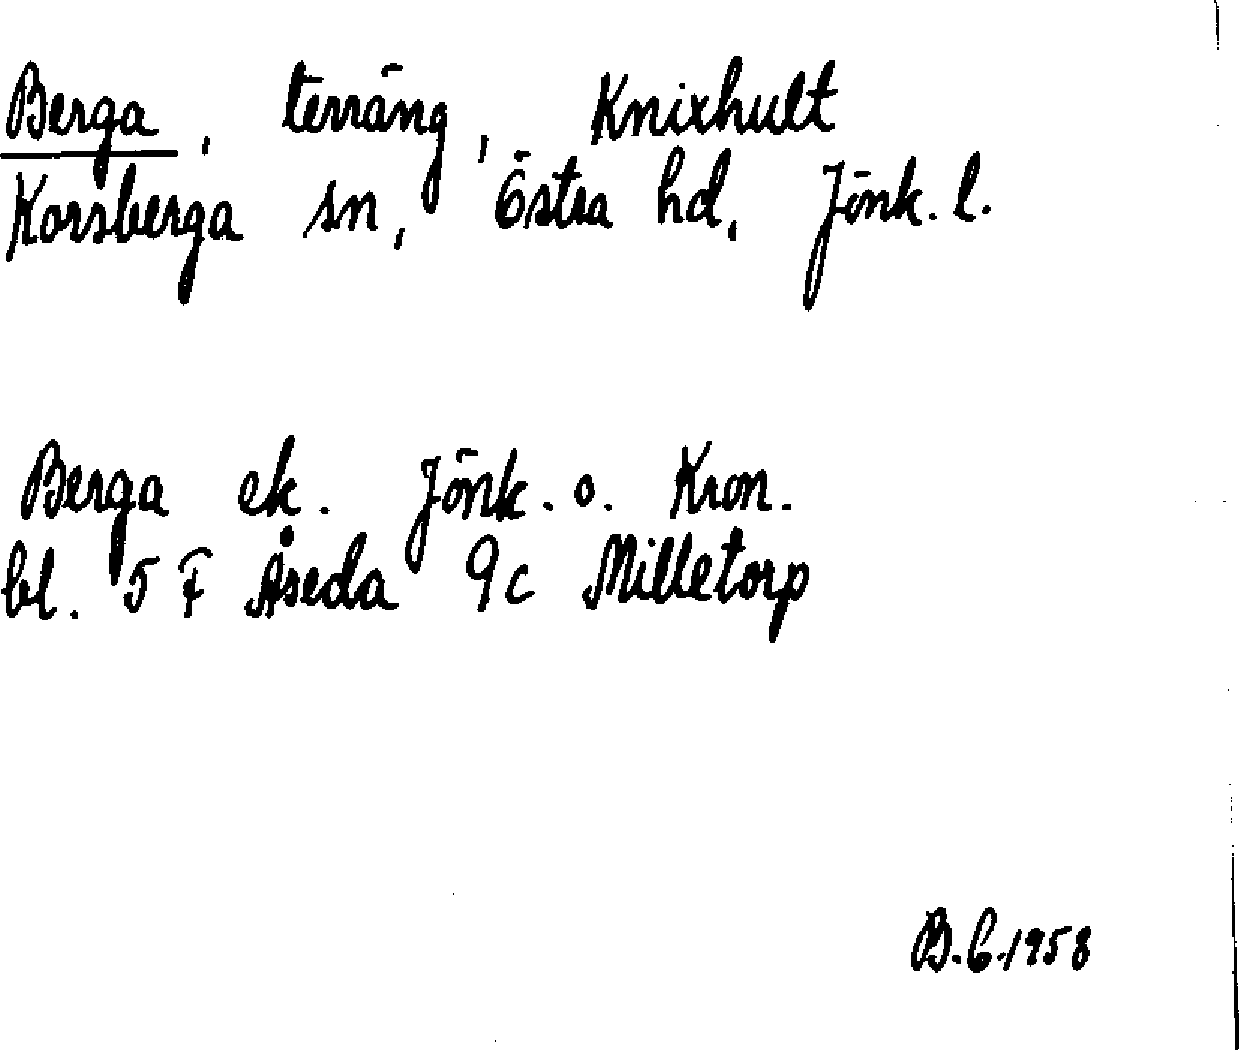 Berga, terräng, Knixhult
Korsberga sn, Östra hd, Jönk. l.
Berga ek. Jönk. o. Kron.
bl. 5 F Åseda 9c Milletorp
B.G.1958